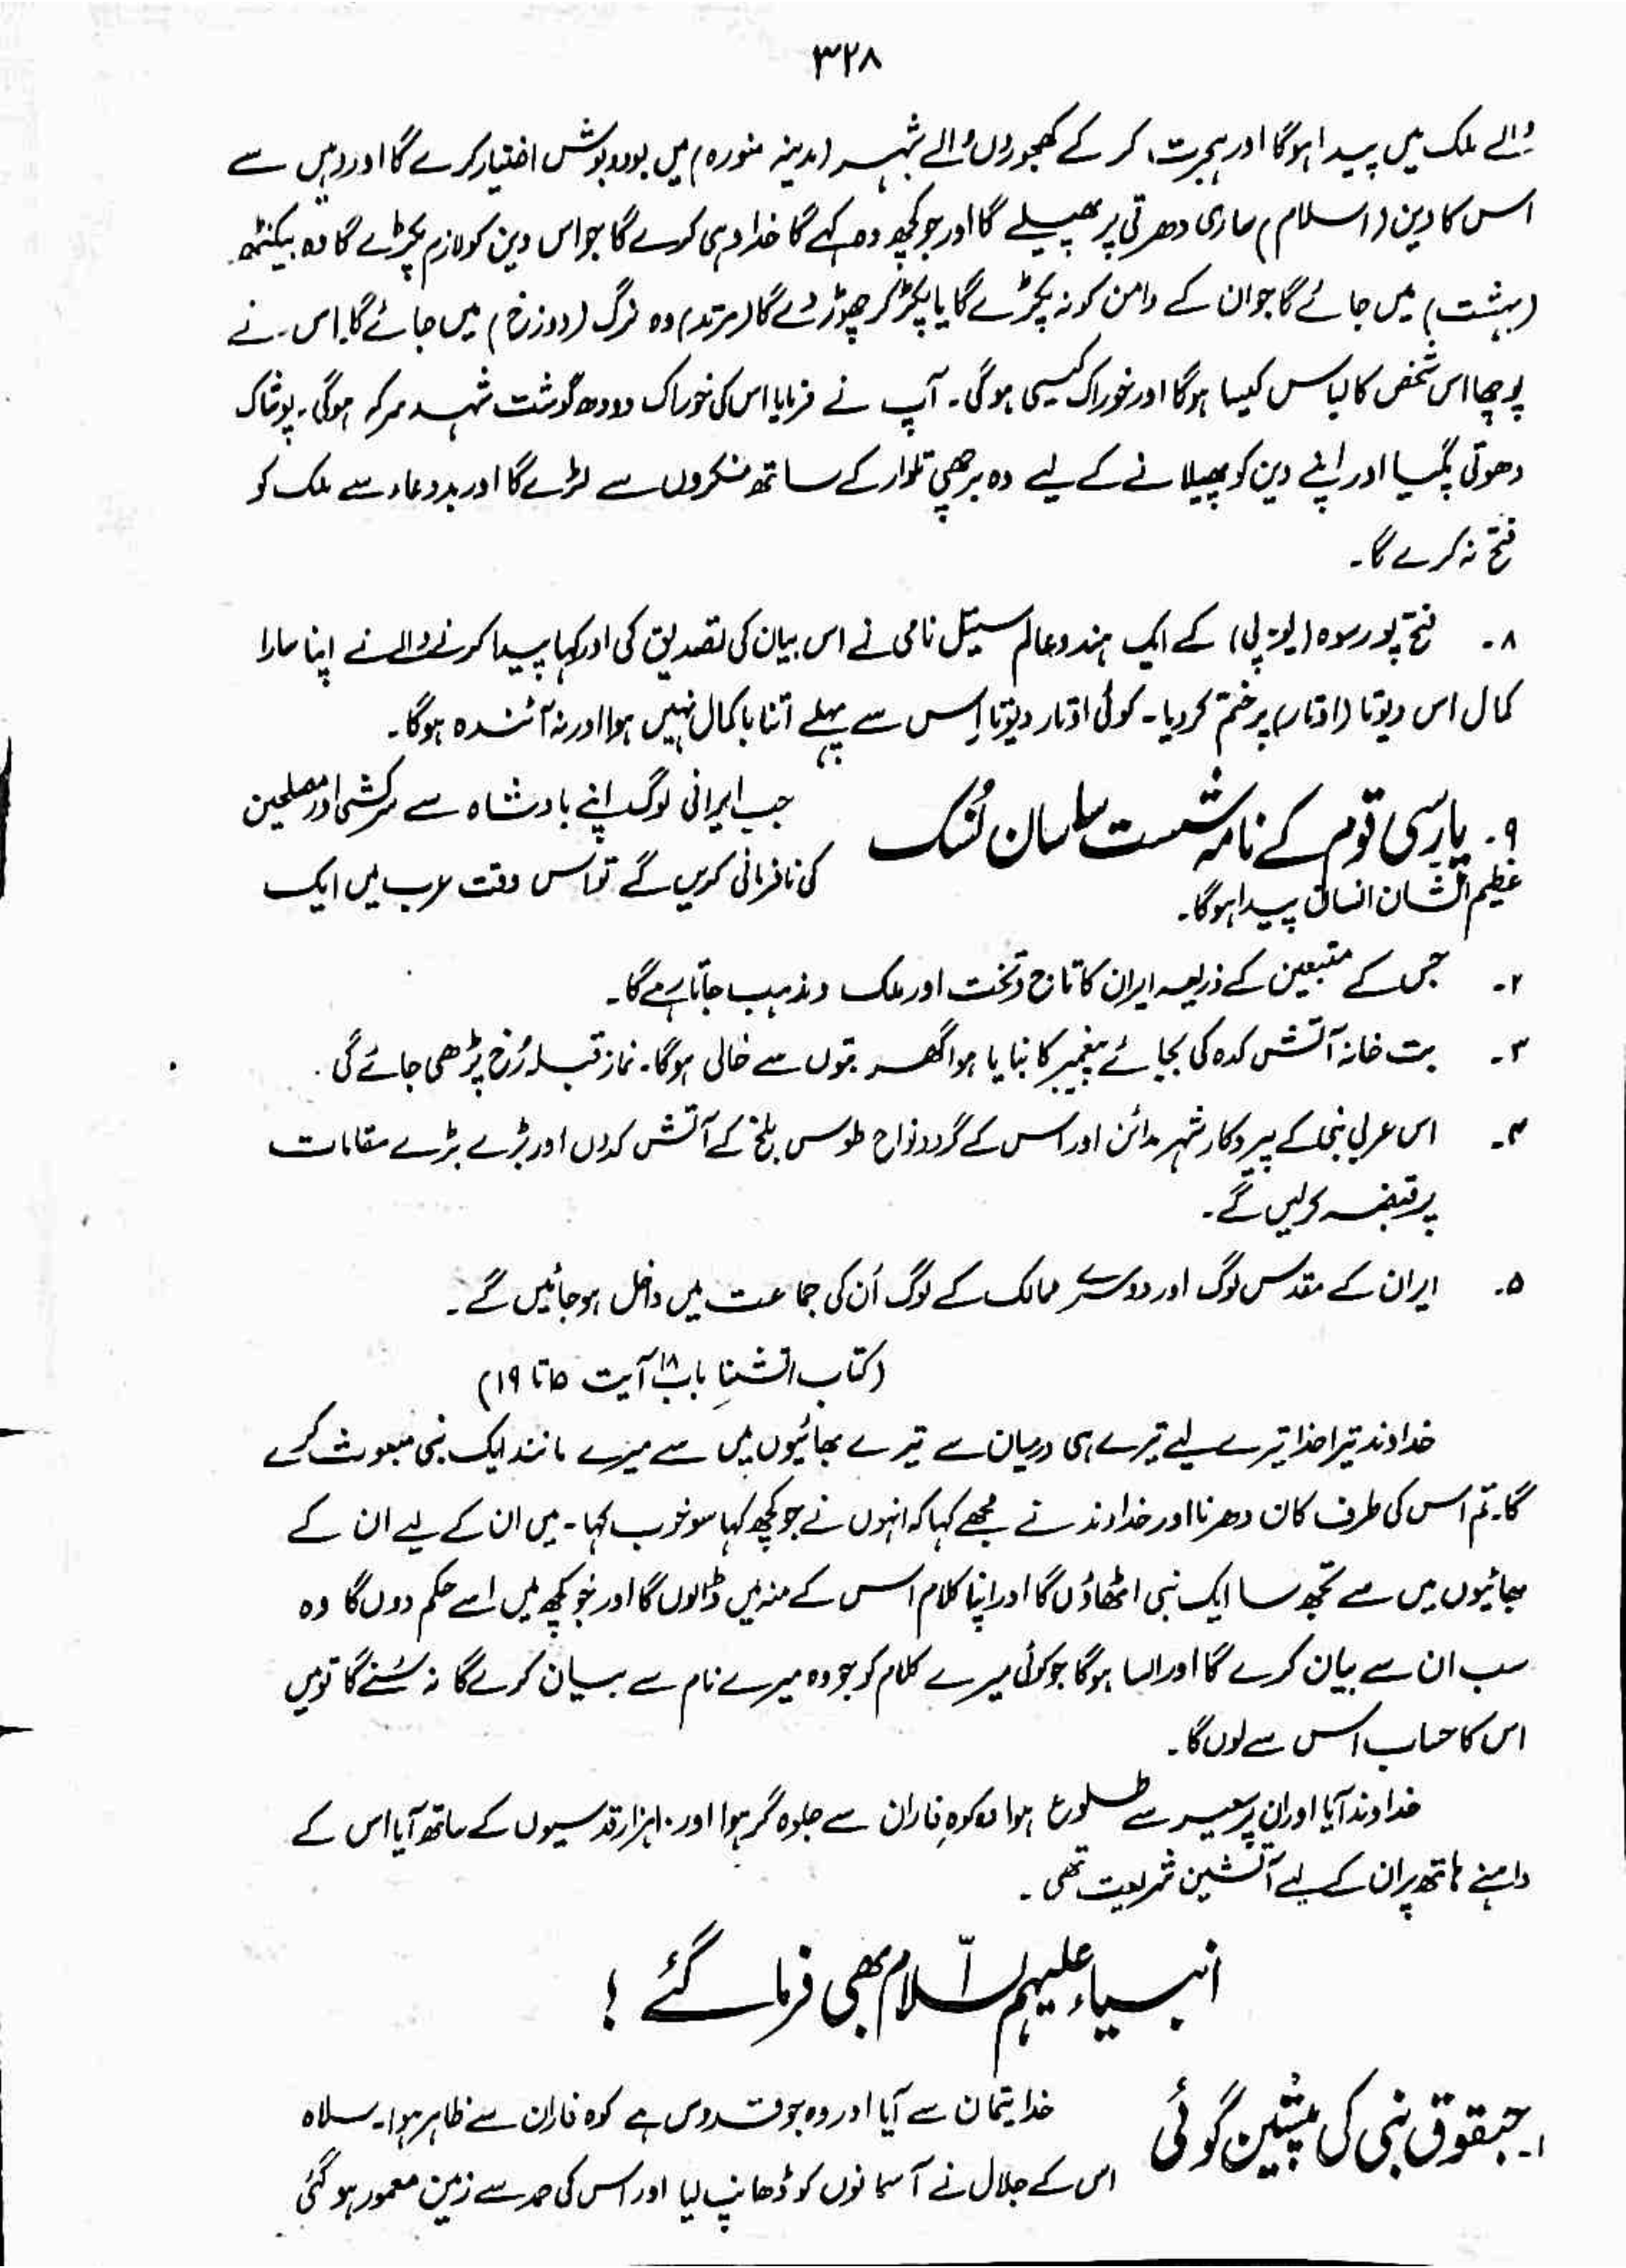 ۳۲۸
والے ملک میں پیدا ہوگا اور ہجرت کر کے کھجوروں والے شہر (مدینہ منورہ) میں بودوبوش اختیار کرے گا اور وہیں سے
اس کا دین (اسلام) ساری دھرتی پر پھیلے گا اور جو کچھ وہ کہے گا خدا وہی کرے گا جو اس دین کو لازم پکڑے گا وہ بیکنٹھ
(بہشت) میں جائے گا جو ان کے دامن کو نہ پکڑے گا یا پکڑ کر چھوڑ دے گا (مرتد) وہ نرگ (دوزخ) میں جائے گا۔ اس نے
پوچھا اس شخص کا لباس کیسا ہوگا اور خوراک کیسی ہوگی۔ آپ نے فرمایا اس کی خوراک دودھ گوشت شہد سرکہ ہوگی۔ پوشاک
دھوتی پگیا اور اپنے دین کو پھیلانے کے لیے وہ برچھی تلوار کے ساتھ منکروں سے لڑے گا اور بددعاء سے ملک کو
فتح نہ کرے گا۔
۸۔ فتح پور سوہ (یو۔پی) کے ایک ہندو عالم سیتل نامی نے اس بیان کی تصدیق کی اور کہا پیدا کرنے والے نے اپنا سارا
کمال اس دیوتا (اوتار) پر ختم کر دیا۔ کوئی اوتار دیوتا اس سے پہلے اتنا باکمال نہیں ہوا اور نہ آئندہ ہوگا۔
۹۔ پارسی قوم کے نامۂ شست ساسان نُسک
جب ایرانی لوگ اپنے بادشاہ سے سرکشی اور مصلحین
کی نافرمانی کریں گے تو اس وقت عرب میں ایک
عظیم الشان انسان پیدا ہوگا۔
۲۔ جس کے متبعین کے ذریعہ ایران کا تاج و تخت اور ملک و مذہب جاتا رہے گا۔
۳۔ بت خانہ آتش کدہ کی بجائے پیغمبر کا بنایا ہوا گھر بتوں سے خالی ہوگا۔ نماز قبلہ رُخ پڑھی جائے گی۔
۴۔ اس عربی نبی کے پیروکار شہر مدائن اور اس کے گردونواح طوس بلخ کے آتش کدوں اور بڑے بڑے مقامات
پر قبضہ کر لیں گے۔
۵۔ ایران کے مقدس لوگ اور دوسرے ممالک کے لوگ اُن کی جماعت میں داخل ہو جائیں گے۔
(کتاب استثنا باب ۱۸ آیت ۱۵ تا ۱۹)
خداوند تیرا خدا تیرے لیے تیرے ہی درمیان سے تیرے بھائیوں میں سے میرے مانند ایک نبی مبعوث کرے
گا۔ تم اس کی طرف کان دھرنا اور خداوند نے مجھے کہا کہ انہوں نے جو کچھ کہا سو خوب کہا۔ میں ان کے لیے ان کے
بھائیوں میں سے تجھ سا ایک نبی اٹھاؤں گا اور اپنا کلام اس کے منہ میں ڈالوں گا اور جو کچھ میں اسے حکم دوں گا وہ
سب ان سے بیان کرے گا اور ایسا ہوگا جو کوئی میرے کلام کو جو وہ میرے نام سے بیان کرے گا نہ سُنے گا تو میں
اس کا حساب اس سے لوں گا۔
خداوند آیا اور ان پر سعیر سے طلوع ہوا وہ کوہِ فاران سے جلوہ گر ہوا اور ۱۰ ہزار قدسیوں کے ساتھ آیا اس کے
داہنے ہاتھ پر ان کے لیے آتشین شریعت تھی۔
انبیاء علیہم السلام بھی فرما گئے !
۱۔ حبقوق نبی کی پیشین گوئی
خدا تیمان سے آیا اور وہ جو قدوس ہے کوہ فاران سے ظاہر ہوا۔ سلاہ
اس کے جلال نے آسمانوں کو ڈھانپ لیا اور اس کی حمد سے زمین معمور ہو گئی